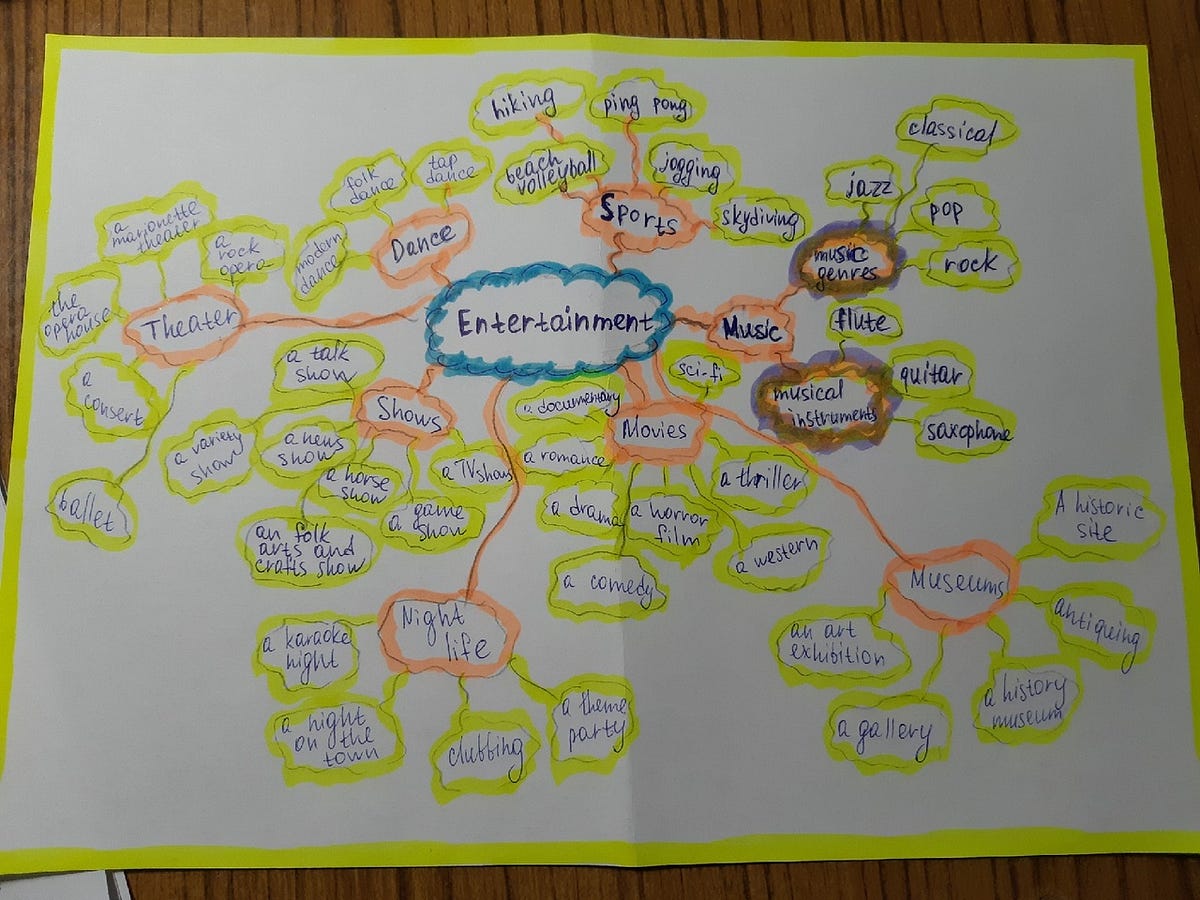 Entertainment
Sports
hiking
ping pong
beach
volleyball
jogging
skydiving
Music
music
genres
classical
jazz
pop
rock
musical
instruments
flute
guitar
saxophone
Museums
A historic
site
antiquing
a history
museum
a gallery
an art
exhibition
Movies
sci-fi
a documentary
a romance
a drama
a comedy
a horror
film
a thriller
a western
Night
life
a karaoke
night
a night
on the
town
clubbing
a theme
party
Shows
a talk
show
a variety
show
a news
show
a horse
show
an folk
arts and
crafts show
a game
show
a TV show
Theater
a
marionette
theater
a
rock
opera
the
opera
house
a
consert
ballet
Dance
folk
dance
tap
dance
modern
dance